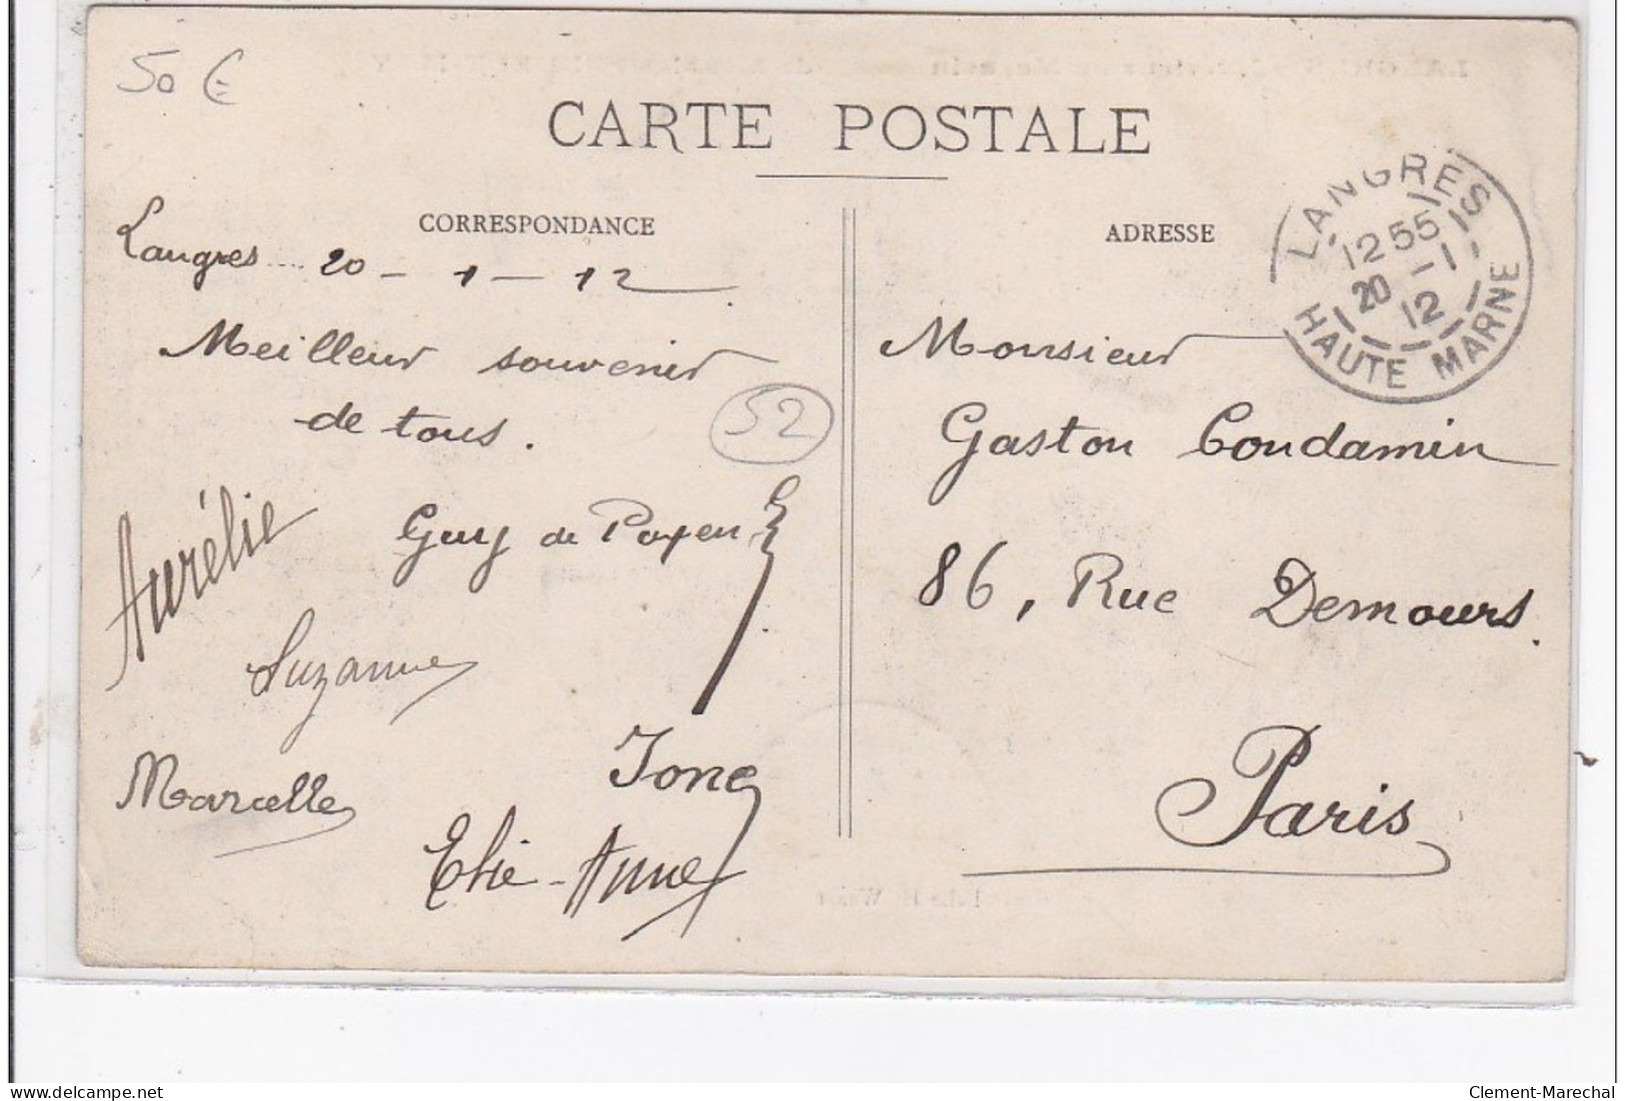 50 €
CARTE POSTALE
CORRESPONDANCE
Langres 20 - 1 - 12
Meilleur souvenir
de tous.
52
Aurélie
Guy de Payen
Suzanne
Marcelle
Ione
Elie-Anne
ADRESSE
LANGRES
12 55
20 -1
12
HAUTE MARNE
Monsieur
Gaston Condamin
86, Rue Demours.
Paris
delcampe.net
Clement-Marechal